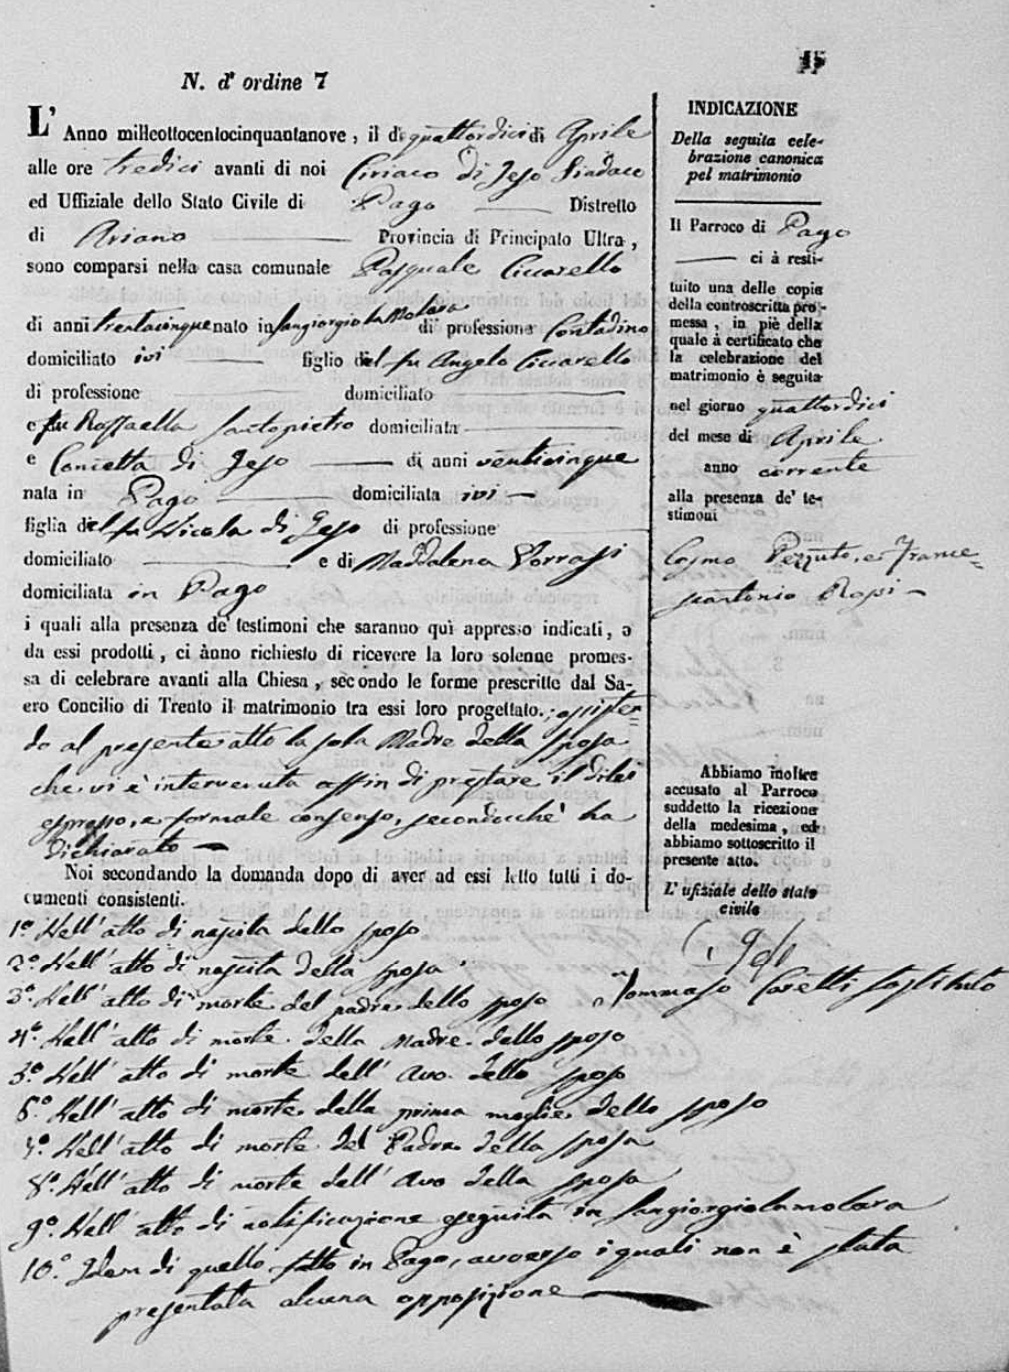 15
N. d' ordine 7
L' Anno milleottocentocinquantanove, il dì quattordici di Aprile
alle ore tredici avanti di noi Ciriaco di Jeso Sindaco
ed Uffiziale dello Stato Civile di Pago Distretto
di Ariano Provincia di Principato Ultra,
sono comparsi nella casa comunale Pasquale Ciccarello
di anni trentacinque nato in Sangiorgio la Molara di professione Contadino
domiciliato ivi figlio del fu Angelo Ciccarello
di professione domiciliato
e fu Raffaella Santopietro domiciliata
e Concetta di Jeso di anni venticinque
nata in Pago domiciliata ivi
figlia del fu Nicola di Jeso di professione
domiciliato e di Maddalena Vorrasi
domiciliata in Pago
i quali alla presenza de' testimoni che saranno quì appresso indicati, e
da essi prodotti, ci ànno richiesto di ricevere la loro solenne promes-
sa di celebrare avanti alla Chiesa, secondo le forme prescritte dal Sa-
cro Concilio di Trento il matrimonio tra essi loro progettato.; assisten=
do al presente atto la sola Madre della sposa
che vi è intervenuta affin di prestare il dilei
espresso, e formale consenso, secondocchè ha
dichiarato
Noi secondando la domanda dopo di aver ad essi letto tutti i do-
cumenti consistenti.
1.° Nell' atto di nascita dello sposo
2.° Nell' atto di nascita della sposa
3.° Nell' atto di morte del padre dello sposo
4.° Nell' atto di morte della Madre dello sposo
5.° Nell' atto di morte dell' avo dello sposo
6.° Nell' atto di morte della prima moglie dello sposo
7.° Nell' atto di morte del Padre della sposa
8.° Nell' atto di morte dell' avo della sposa
9.° Nell' atto di notificazione eseguita in Sangiorgiolamolara
10.° Idem di quello fatto in Pago, avverso i quali non è stata
presentata alcuna opposizione
INDICAZIONE
Della seguita cele-
brazione canonica
pel matrimonio
Il Parroco di Pago
ci à resti-
tuito una delle copie
della controscritta pro-
messa, in piè della
quale à certificato che
la celebrazione del
matrimonio è seguita
nel giorno quattordici
del mese di Aprile
anno corrente
alla presenza de' te-
stimoni
Cosmo Pezzuto, e France=
scantonio Rossi
Abbiamo inoltre
accusato al Parroco
suddetto la ricezione
della medesima, ed
abbiamo sottoscritto il
presente atto.
L' ufiziale dello stato
civile
Tommaso Coretti sostituto